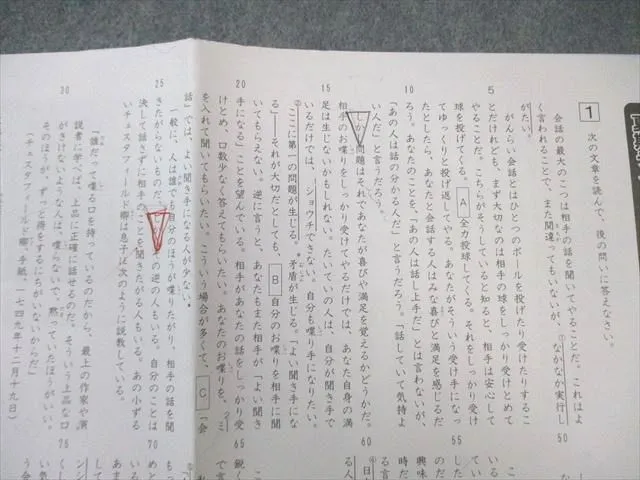 1 次の文章を読んで、後の問いに答えなさい。
会話の最大のこつは相手の話を聞いてやることだ。これはよ
く言われることで、また間違ってもいないが、なかなか実行し
がたい。
がんらい会話とはひとつのボールを投げたり受けたりするこ
5
とだけれども、まず大切なのは相手の球をしっかり受けとめて
やることだ。こちらがそうしていると知ると、相手は安心して
球を投げてくる。 A 全力投球してくる。それをしっかり受け
てゆっくりと投げ返してやる。あなたがそういう受け手になっ
たとしたら、あなたと会話する人はみな喜びと満足を感じるだ
10
ろう。あなたのことを、「あの人は話し上手だ」とは言わないが、
「あの人は話の分かる人だ」と言うだろう。「話していて気持よ
い人だ」と言うだろう。
しかし問題はそれであなたが喜びや満足を覚えるかどうかだ。
相手のお喋りをしっかり受けてやるだけでは、あなた自身の満
15
足は生じないかもしれない。たいていの人は、自分が聞き手で
いるだけでは、ショウチできない。自分も喋り手になりたい。
ここに第一の問題が生じる。矛盾が生じる。「よい聞き手にな
る」――それが大切だとしても、 B 自分のお喋りを相手に聞
いてもらえない。逆に言うと、あなたもまた相手が「よい聞き
20
手になる」ことを望んでいる。相手があなたの話をしっかり受
けとめ、口数少なく答えてもらいたい。あなたのお喋りを、ミ
を入れて聞いてもらいたい。こういう場合が多くて、 C 「会
話」では、よい聞き手になる人が少ない。
一般に、人は誰でも自分のほうが喋りたがり、相手の話を聞
25
きたがらないものだ。
の逆の人もいる。自分のことは
決して話さずに相手のことを聞きたがる人もいる。あの小ずる
いチェスタフィールド卿は息子に次のように説教している。
「誰だって喋る口を持っているのだから、最上の作家や演
30
説者に学べば、上品に正確に話せるのだ。そういう上品な口
がきけないような人は、喋らないで、黙っていたほうがいい。
そのほうが、ずっと得をするにちがいないからだ」
(チェスタフィールド卿、手紙、一七四九年十二月十九日)
50
55
60
65
70
75